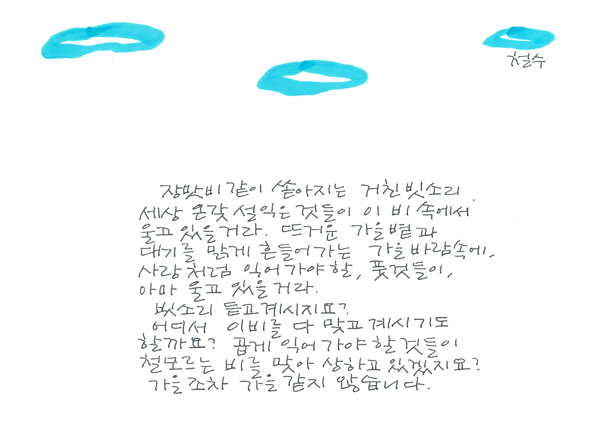 철수
장맛비같이 쏟아지는 거친 빗소리.
세상 온갖 설익은 것들이 이 비 속에서
울고 있을거라. 뜨거운 가을볕과
대기를 맑게 흔들어가는 가을바람속에,
사랑처럼 익어가야 할, 풋것들이,
아마 울고 있을거라.
빗소리 듣고계시지요?
어디서 이비를 다 맞고 계시기도
할까요? 곱게 익어가야 할 것들이
철모르는 비를 맞아 상하고 있겠지요?
가을조차 가을 같지 않습니다.